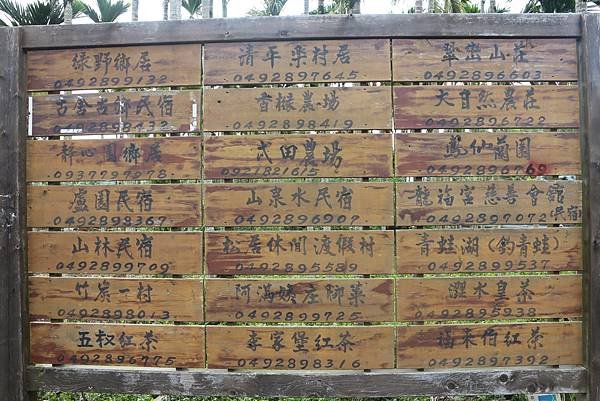 綠野鄉居
0492899132
清年樂村居
0492897645
翠巒山莊
0492896603
古舍
民宿
農場
0492898419
大自然農莊
0492896722
靜心園鄉居
0937797978
武田農場
0921821615
鳳仙蘭園
盧園民宿
0492898367
山泉水民宿
0492896907
龍福宮慈善會館(民宿)
0492897072
山林民宿
0492899709
松居休閒渡假村
0492895589
青蛙湖(釣青蛙)
0492899537
竹炭一村
0492898013
阿滿姨庄腳菜
0492899725
澀水皇茶
0492895938
五叔紅茶
0492896775
李家堡紅茶
0492898316
福來伯紅茶
0492897392